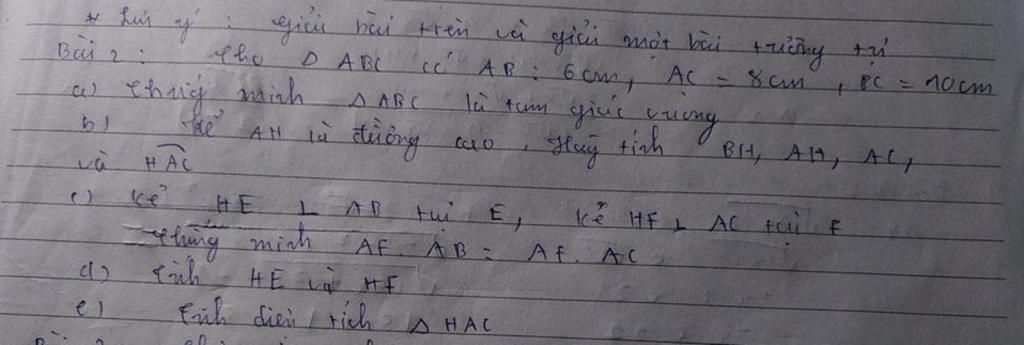 * Lưu ý : giải bài trên và giải một bài tương tự
Bài 2 : Cho Δ ABC có AB = 6cm, AC = 8cm, BC = 10cm
a) Chứng minh Δ ABC là tam giác vuông
b) Kẻ AH là đường cao, Hãy tính BH, AH, AC,
và HAC
c) Kẻ HE ⊥ AB tại E, Kẻ HF ⊥ AC tại F
Chứng minh AE. AB = AF. AC
d) Tính HE và HF
e) Tính diện tích Δ HAC